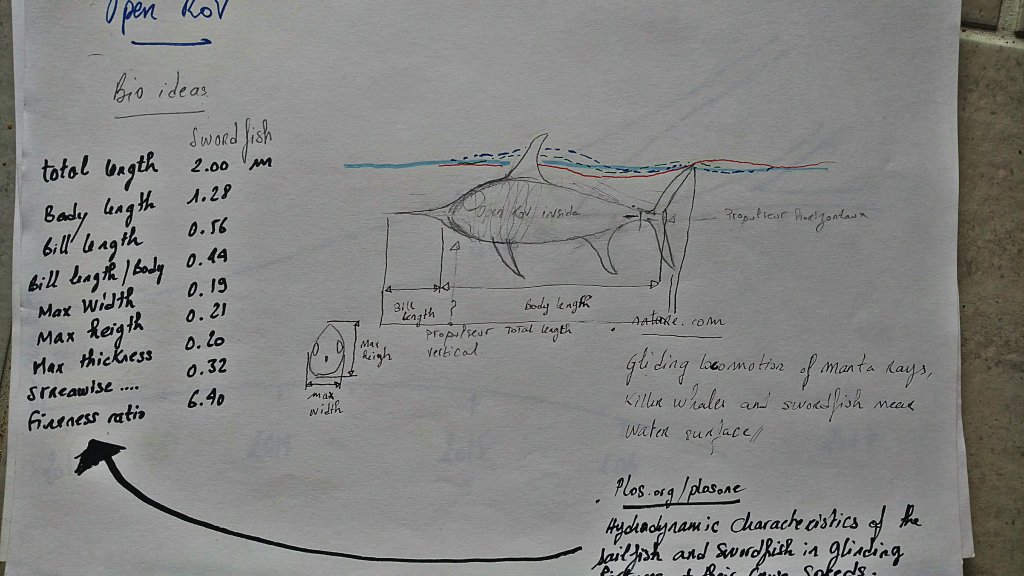 Open ROV
Bio ideas
Swordfish
total length 2.00 m
Body length 1.28
Bill length 0.56
Bill length/Body 0.44
Max Width 0.19
Max heigth 0.21
Max thickness 0.20
streawise .... 0.32
Fineness ratio 6.40
Open ROV inside
Propulseur horizontaux
Bill length
Body length
?
propulseur vertical
Total length
Max heigh
max width
. nature.com
Gliding locomotion of manta rays,
killer whales and swordfish near
water surface//
. Plos.org/plosone
Hydrodynamic characteristics of the
sailfish and swordfish in glinding